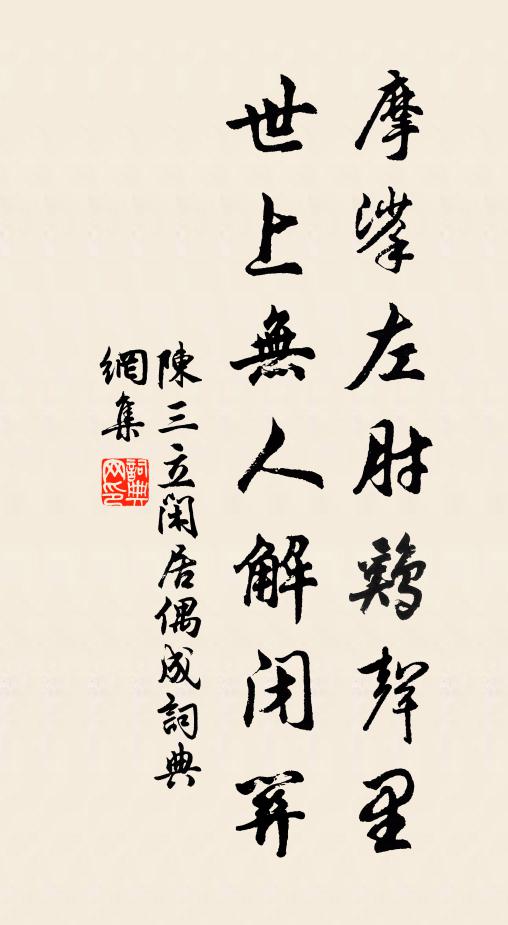 摩挲左肘鷄聲里
世上無人解闭關
陳三立闲居偶成詞典
網集
詞典网印